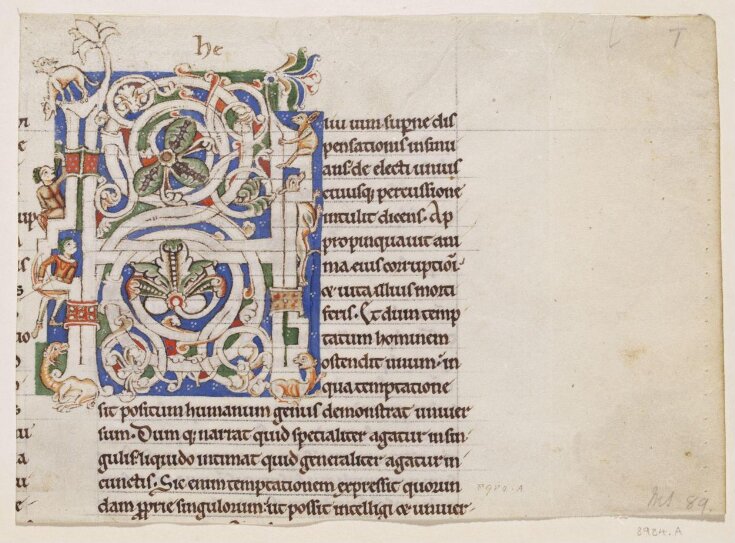 he
T
iuu uim supne dis
pensationis insinu
ans. de electi unius
cuiusq; percussione
intulit dicens. Ap
propinquauit ani
ma eius corruptioni.
& uita illius morti
feris. Et dum temp
tatum hominem
ostendit unum. in
qua temptatione
sit positum humanum genus demonstrat uniuer
sum. Dum q; narrat quid specialiter agatur in sin
gulis. liquido intimat quid generaliter agatur in
cunctis. Sic enim temptationem expressit quorun
dam pprie singulorum. ut possit intelligi & uniuer
Ms. 89.
8984.A